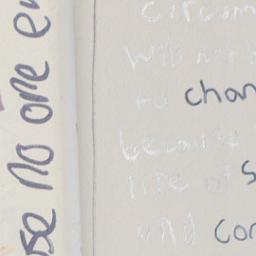 se no one en
circum
will not
to chan
because
life of s
and con